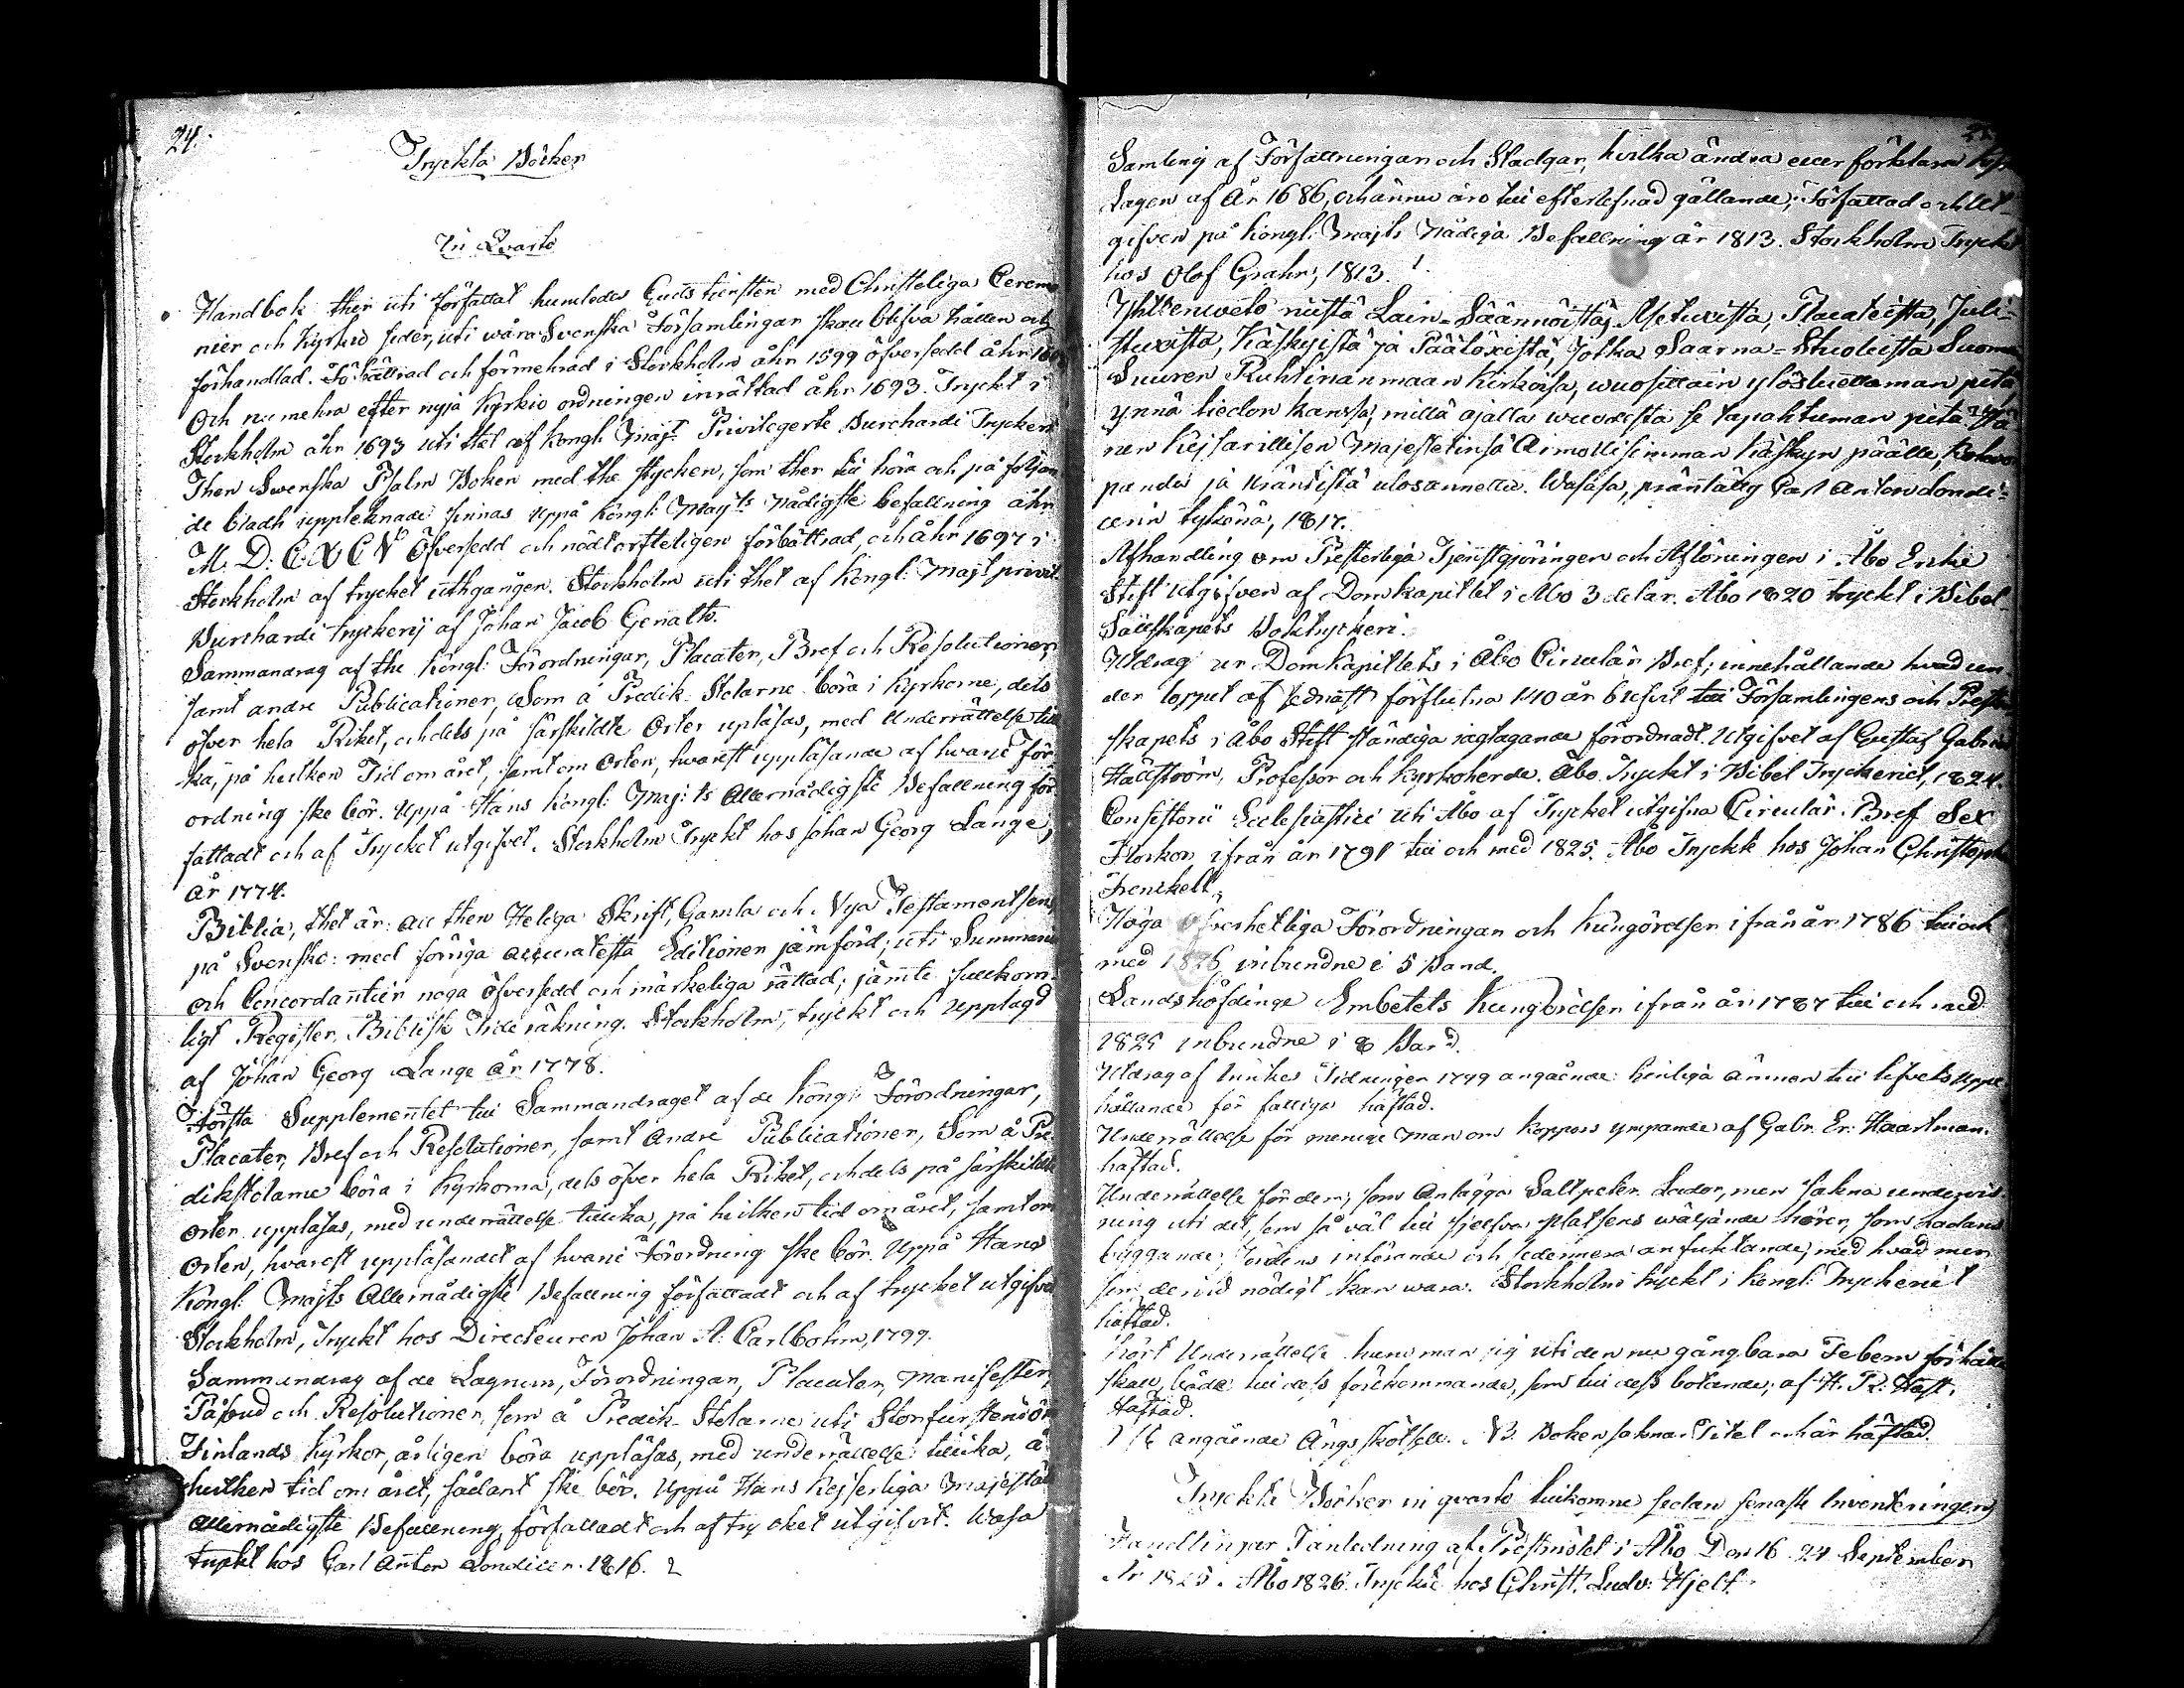 24.
Tryckta Böcker
In Qvarto
Handbok ther uti författat huruledes Gudstiensten med Christeliga Ceremo
nier och Kyrkio seder, uti wåra Svenska Församlingar skall blifva hållen och
förhandlad. Förbättrad och förmehrad i Stockholm åhr 1599 öfversedd åhr 1608
Och nu mehra efter nyja Kyrkio ordningen inrättad åhr 1693. Tryckt i
Stockholm åhr 1693 uti thet af Kongl: Majt: Privilegerte Burchardi Tryckeri
Then Swenska Psalm Boken med the stycken, som ther till höra och på följan
de bladh uppteknade finnas uppå Kongl: Mayts nådigste befallning åhr
M. D: C. X C V Öfversedd och nödtorfteligen förbättrad, och åhr 1697 i
Stockholm af trycket uthgången. Stockholm uti thet af Kongl: Majt privil.
Burchardi tryckerij af Johan Jacob Genath.
Sammandrag af the Kongl: Förordningar, Placater, Bref och Resolutioner,
samt andre Publicationer, Som å Predik-Stolarne böra i Kyrkorne, dels
öfver hela Riket, och dels på särskildte Orter upläsas, med Underrättelse till
ka, på hvilken Tid om året, samt om Orten, hvarest uppläsande af hvarje För
ordning ske bör. Uppå Hans Kongl: Maj:ts Allernådigste Befallning för
fattadt och af Trycket utgifvet. Stockholm Tryckt hos Johan Georg Lange,
År 1774.
Biblia, thet är: all then Heliga Skrift, Gamla och Nya Testamentsens
på Svensko: med förriga accurateste Editionen jämförd; uti Summarie
och Concordantier noga öfversedd och märkeliga rättad; jämte fullkom
ligt Register, Biblisk Tideräkning. Stockholm, tryckt och Upplagd
af Johan Georg Lange År 1778.
Första Supplementet till Sammandraget af de Kongl: Förordningar,
Placater, Bref och Resolutioner, samt Andre Publicationer, Som å Pre
dikstolarne böra i Kyrkorna, dels öfver hela Riket, och dels på särskildte
orter uppläsas, med underrättelse tillika, på hvilken tid om året, samt om
Orten, hvarest uppläsandet af hvarje Förordning ske bör. Uppå Hans
Kongl: Majts Allernådigste Befallning författadt och af trycket utgifve
Stockholm, Tryckt hos Directeuren Johan A: Carlbohm, 1799.
Sammandrag af de Lagrum, Förordningar, Placater, Manifester,
Påbud och Resolutioner, som å Predik-Stolarne uti Storfurstendöm
Finlands Kyrkor, årligen böra uppläsas, med underrättelse tillika, å
hvilken tid om året, sådant ske bör. Uppå Hans Kejserliga Majestäts
allernådigste Befallning, författadt och af trycket utgifvit. Wasa
tryckt hos Carl Anton Londicer. 1816. 2
Samling af Författningar och Stadgar, hvilka ändra eller förklara Kyr
Lagen af År 1686, och ännu äro till efterlefnad gällande; Författad och Ut-
gifven på Kongl: Majts Nådiga Befallning år 1813. Stockholm Tryckt
hos Olof Grahn, 1813. 1.
Yhteenweto niistä Lain-Säännöistä, Asetuxista, Placateista, Juli-
stuxista, Käskyistä ja Päätöxistä, Jotka Saarna-Stuoleista Suomen
Suuren Ruhtinanmaan Kirkoisa, wuosittain ylösluettaman pitä
ynnä tiedon kanssa, millä ajalla wuodesta se tapahtuman pitä. Hä
nen Keisarillisen Majestetinsä Armollisimman Käskyn päälle, kokoon
pandu ja kräntistä ulosannettu. Wasasa, präntätty Carl Anton Londi-
cerin tykönä, 1817.
Afhandling om Presterliga Tjenstgjöringen och Aflöningen i Åbo Erke
Stift Utgifven af Domkapitlet i Åbo 3 delar. Åbo 1820 tryckt i Bibel-
Sällskapets Boktryckeri.
Utdrag ur Domkapitlets i Åbo Circulär Bref; innehållande hvad un
der loppet af sednast förflutna 140 år blifvit till Församlingens och Prester
skapets i Åbo Stift ständiga iagtagande förordnadt. Utgifvet af Gustaf Gabriel
Hällström, Professor och Kyrkoherde. Åbo Tryckt i Bibel Tryckeriet, 1824.
Consistorii Ecclesiastici uti Åbo af Trycket utgifna Circulär-Bref Sex
Flockor, ifrån år 1791 till och med 1825. Åbo Tryckt hos Johan Christopher
Frenckell.
Höga Öfverhetliga Förordningar och Kungörelser ifrån år 1786 till och
med 1826 inbundne i 5 Band.
Landshöfdinge Embetets Kungörelser ifrån år 1787 till och med
1825 inbundne i 8 Band.
Utdrag af Inrikes Tidningen 1799 angående tienliga ämnen till lifvets uppe
hållande för fattiga häftad.
Underrättelse för menige man om Koppors ympande af Gabr. Er: Haartman.
häftad.
Underrättelse för dem, som Anlägga Saltpeter-Lador, men sakna undervis
ning uti det, som så väl till sjelfva platsens wäljande hörer, som Ladans
byggande, Jordens införande och sedermera anfuktande, med hvad mer
som dervid nödigt kan wara. Stockholm tryckt i Kongl: Tryckeriet
häftad.
Kort Underrättelse huru man sig uti den nu gångbara Febern förhålla
skall, både till dess förekommande, som till dess botande; af H. Pr: Hast.
Häftad.
angående Ängsskötseln. NB. Boken saknar Titel och är häftad.
Tryckte Böcker in qvarto tillkomne sedan senaste Inventeringen
Handlingar I anledning af Prestmötet i Åbo Den 16 24 September
År 1825. Åbo 1826 Tryckt hos Christ. Ludv: Hjelt.